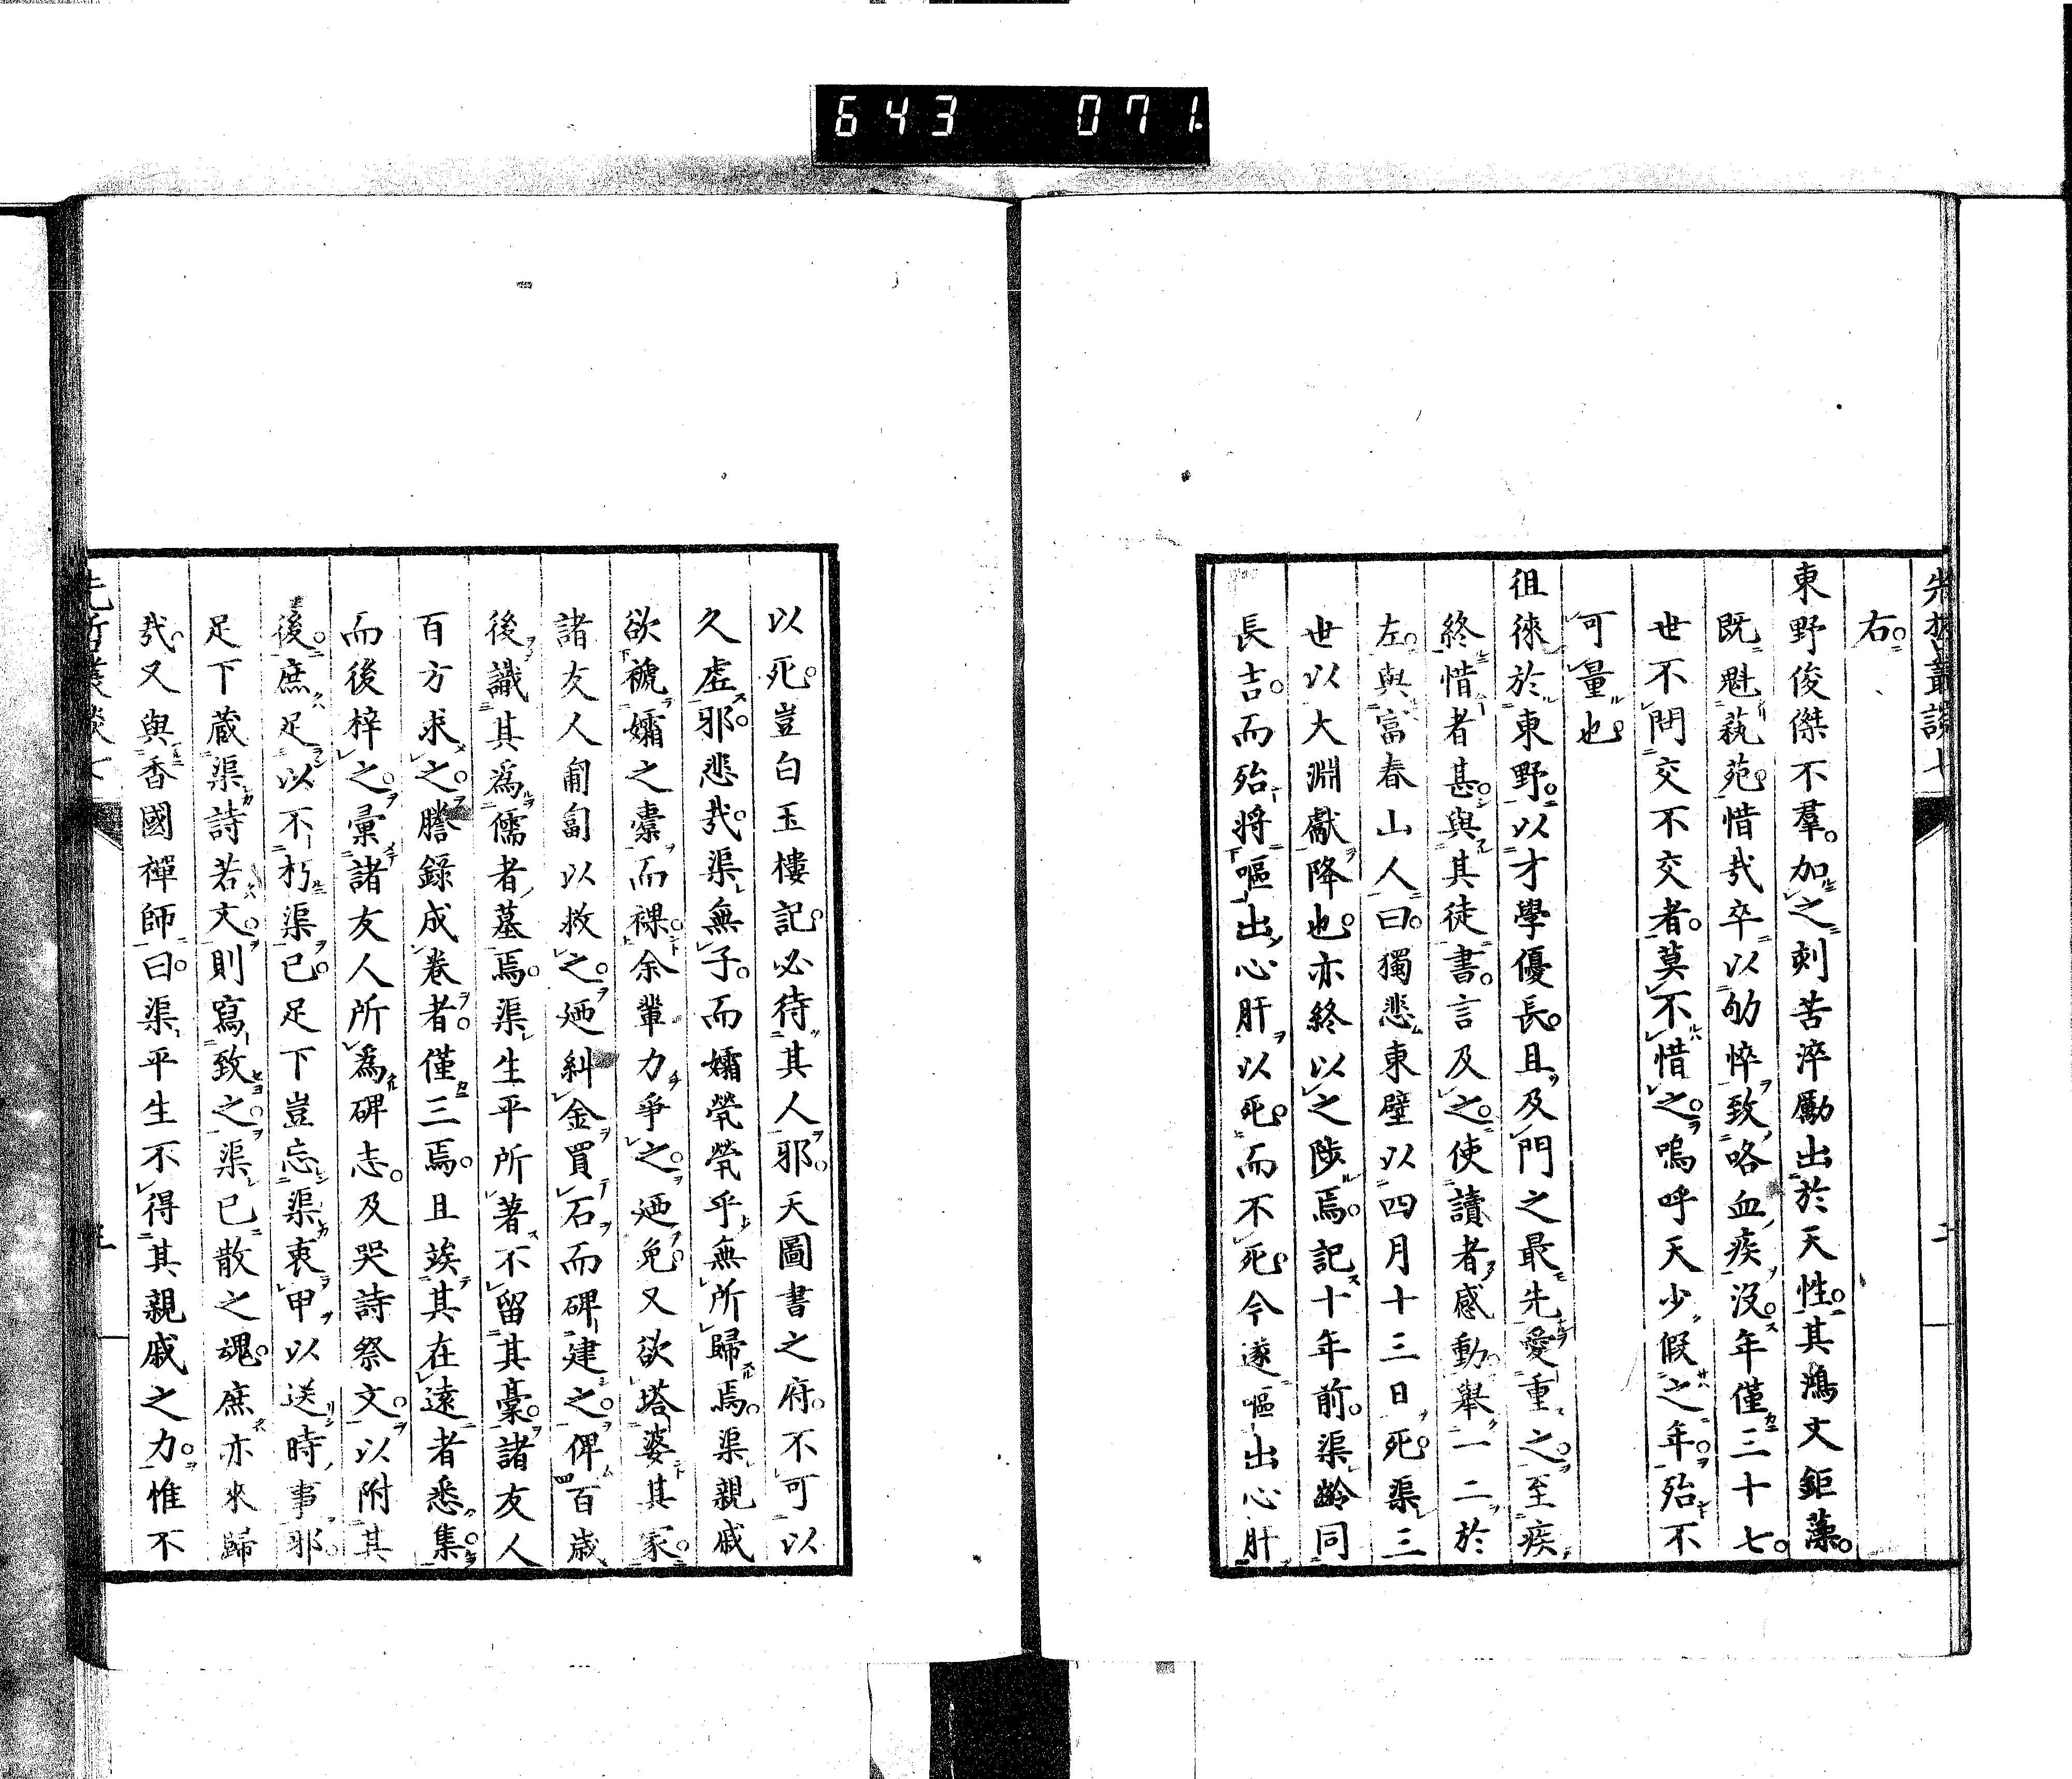 643 071
先哲叢談七
右
東野俊傑不羣加之刻苦淬勵出於天性其鴻文鉅藻
既魁蓺苑惜哉卒以劬悴致咯血疾沒年僅三十七
世不問交不交者莫不惜之嗚呼天少假之年殆不
可量也
徂徠於東野以才學優長且及門之最先愛重之至疾
終惜者甚與其徒書言及之使讀者感動舉一二於
左與富春山人曰獨悲東壁以四月十三日死渠三
世以大淵獻降也亦終以之陟焉記十年前渠齡同
長吉而殆將嘔出心肝以死而不死今遂嘔出心肝
以死豈白玉樓記必待其人邪天圖書之府不可以
久虛邪悲哉渠無子而孀煢煢乎無所歸焉渠親戚
欲褫孀之橐而裸余輩力爭之廼免又欲塔婆其冢
諸友人匍匐以救之廼糾金買石而碑建之俾百歲
後識其為儒者墓焉渠生平所著不留其稾諸友人
百方求之謄錄成卷者僅三焉且竢其在遠者悉集
而後梓之彙諸友人所為碑志及哭詩祭文以附其
後庶足以不朽渠已足下豈忘渠衷甲以送時事邪
足下蔵渠詩若文則寫致之渠已散之魂庶亦來歸
哉又與香國禪師曰渠平生不得其親戚之力惟不
先哲叢談七